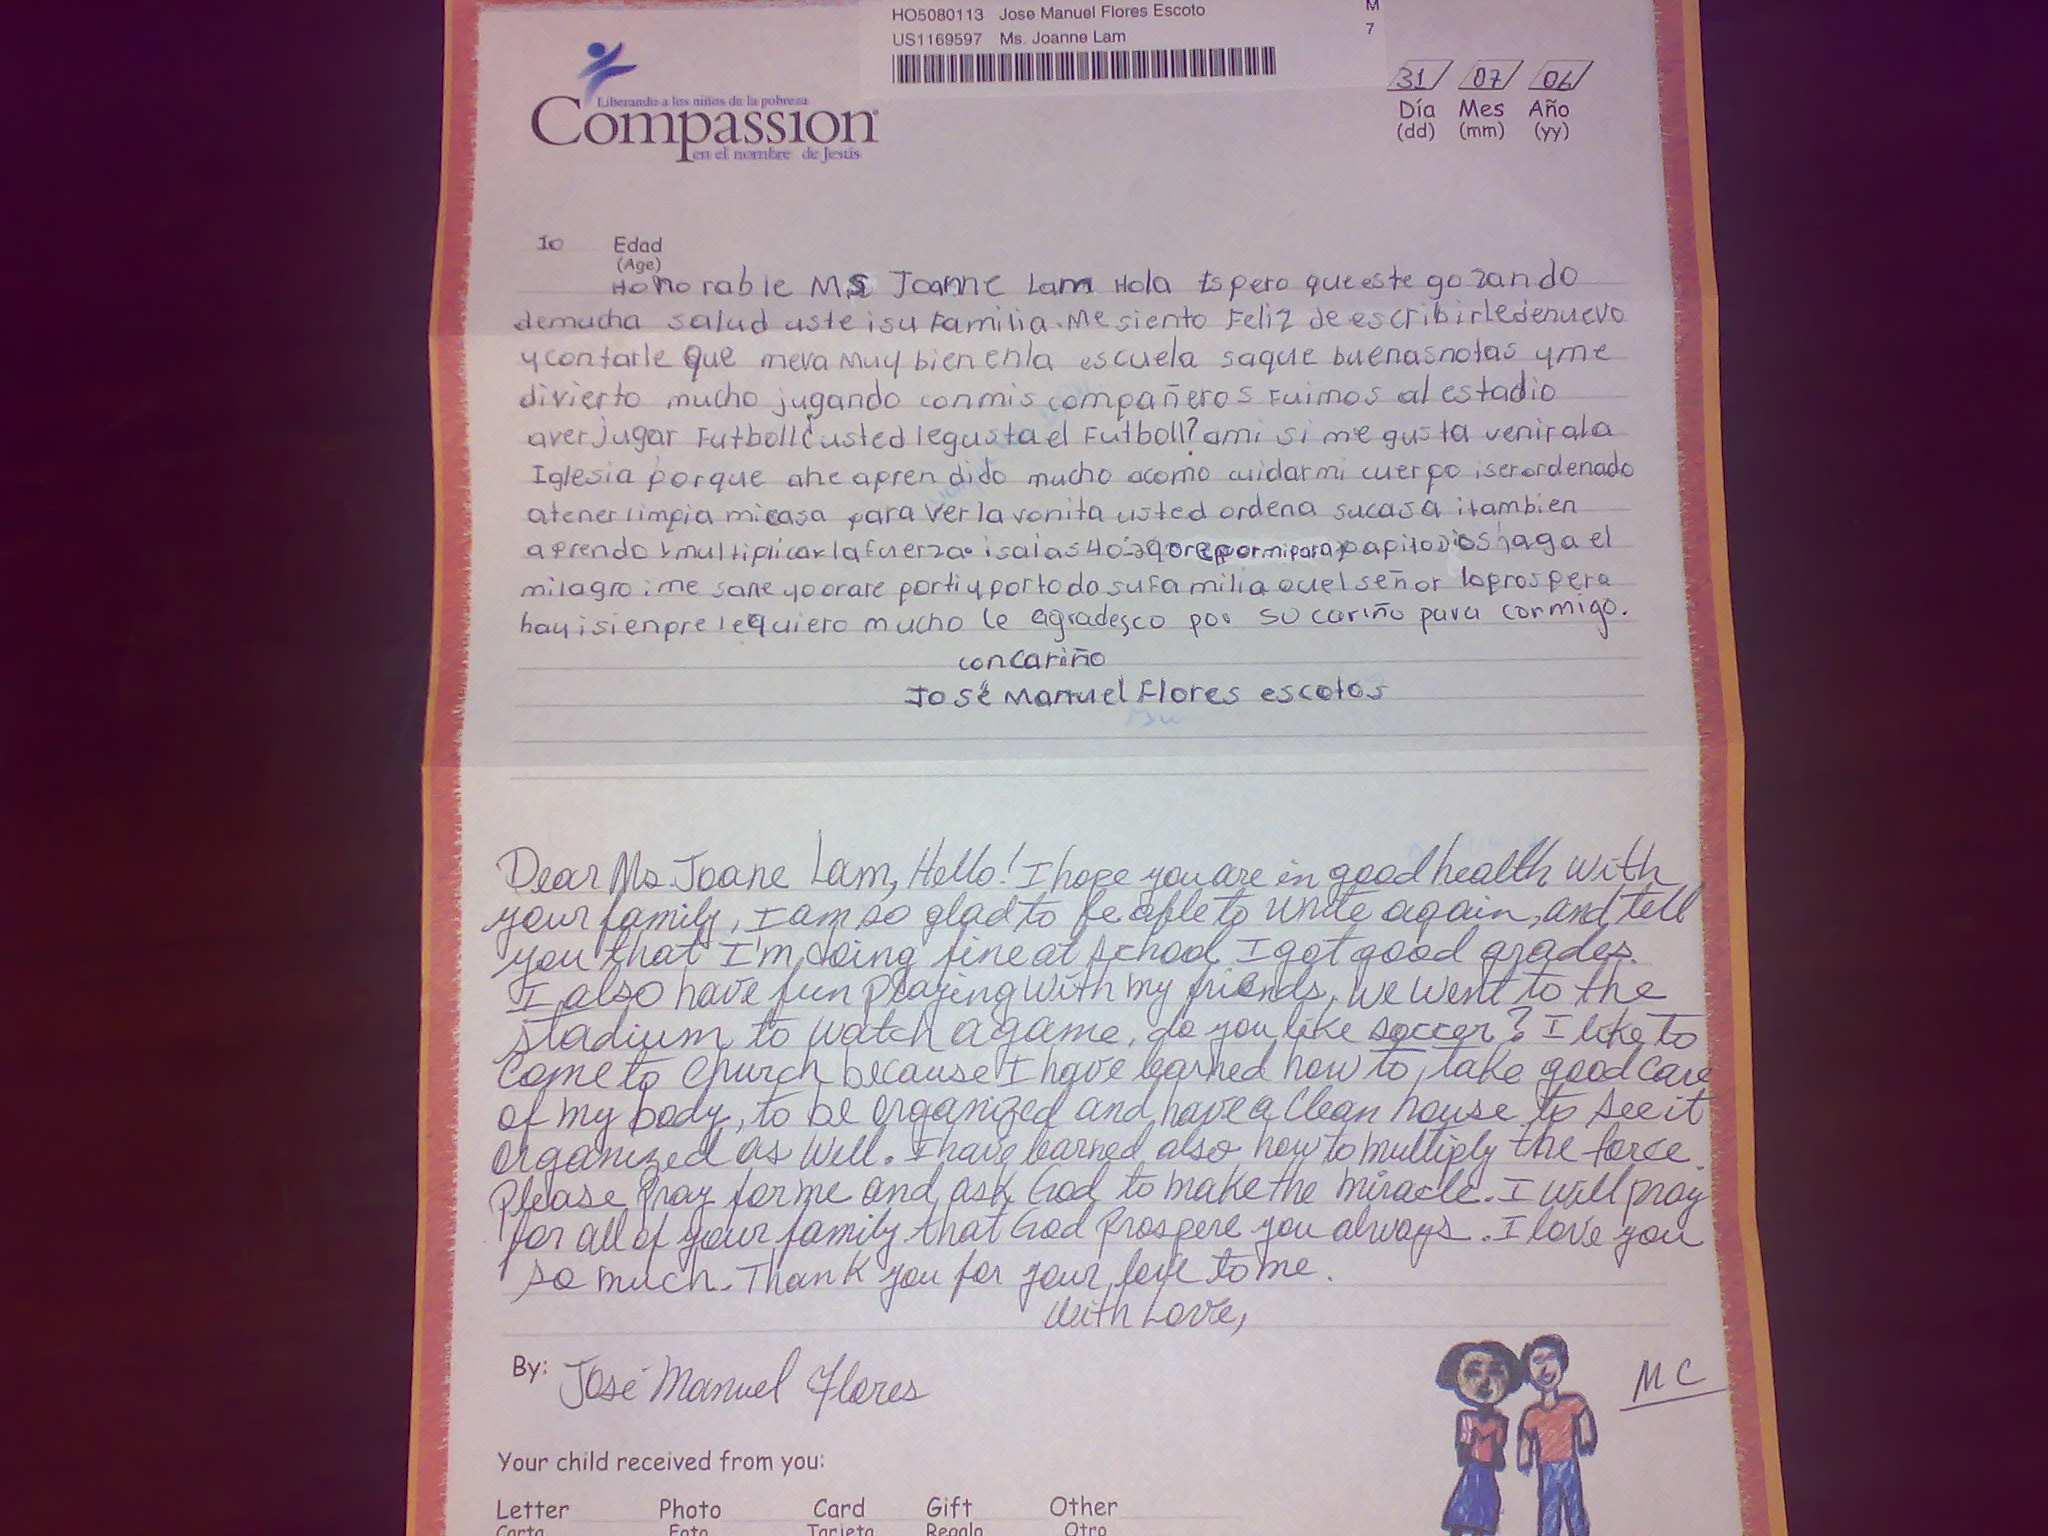 HO5080113 Jose Manuel Flores Escoto
M
US1169597 Ms. Joanne Lam
7
Liberando a los niños de la pobreza
Compassion
en el nombre de Jesús
31 07 06
Día Mes Año
(dd) (mm) (yy)
10 Edad
(Age)
Honorable Ms Joanne Lam Hola Espero que este gozando
demucha salud uste isu Familia. Me siento Feliz de escribirledenuevo
y contarle Que meva Muy bien enla escuela saque buenasnotas yme
divierto mucho jugando conmis compañeros Fuimos al estadio
aver jugar Futboll ¿usted legusta el Futboll? ami si me gusta venirala
Iglesia porque ahe aprendido mucho acomo cuidarmi cuerpo iserordenado
atener limpia micasa para verla vonita usted ordena sucasa itambien
aprendo multiplicar la Fuerza. isaias 40-29 ore por mi para papito Dios haga el
milagro i me sane yo orare porti y portoda su Familia quel señor lo prospera
hay i sienpre leQuiero mucho le agradesco por su cariño para conmigo.
con cariño
José Manuel Flores escotos
Dear Ms. Joane Lam, Hello! I hope you are in good health with
your family, I am so glad to be able to write again, and tell
you that I'm doing fine at school I got good grades.
I also have fun playing with my friends, we went to the
stadium to watch a game, do you like soccer? I like to
come to church because I have learned how to take good care
of my body, to be organized and have a clean house to see it
organized as well. I have learned also how to multiply the force.
Please pray for me and ask God to make the miracle. I will pray
for all of your family that God prospere you always. I love you
so much. Thank you for your love to me.
With Love,
By: José Manuel Flores
MC
Your child received from you:
Letter Photo Card Gift Other
Carta Foto Tarjeta Regalo Otro